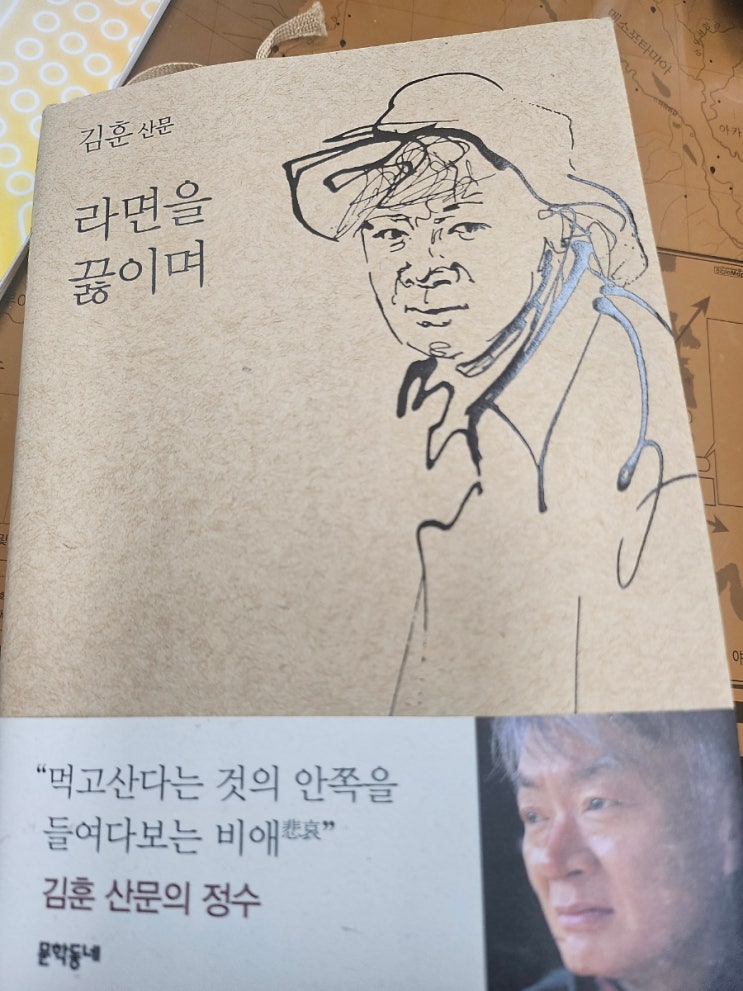 김훈 산문
라면을
끓이며
메소포타미아
아카
“먹고산다는 것의 안쪽을
들여다보는 비애悲哀”
김훈 산문의 정수
문학동네
야